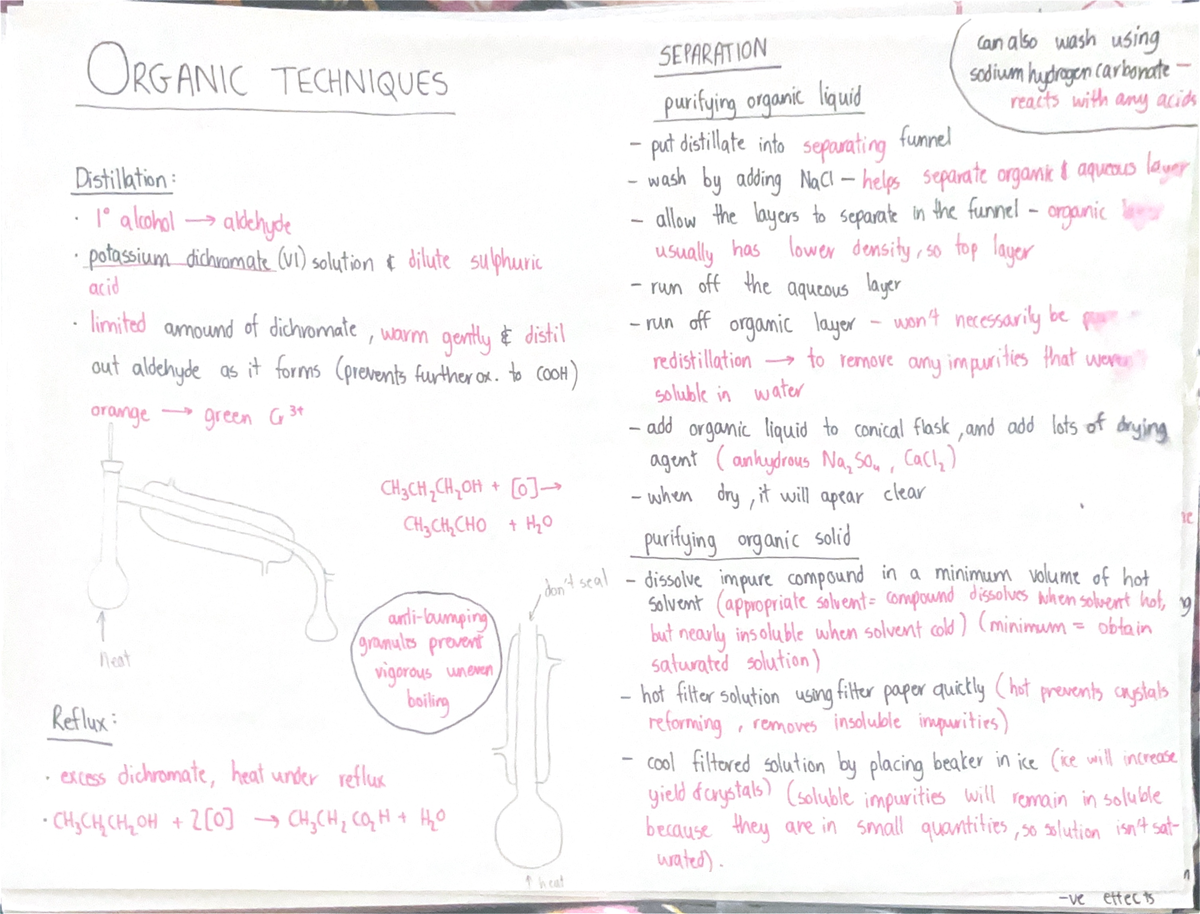 ORGANIC TECHNIQUES
Distillation:
· 1° alcohol → aldehyde
· potassium dichromate (VI) solution & dilute sulphuric
acid
· limited amound of dichromate, warm gently & distil
out aldehyde as it forms (prevents further ox. to COOH)
orange → green Cr³⁺
CH₃CH₂CH₂OH + [O] →
CH₃CH₂CHO + H₂O
heat
anti-bumping
granules prevent
vigorous uneven
boiling
don't seal
↑ heat
Reflux:
· excess dichromate, heat under reflux
· CH₃CH₂CH₂OH + 2[O] → CH₃CH₂CO₂H + H₂O
SEPARATION
can also wash using
sodium hydrogen carbonate –
reacts with any acids
purifying organic liquid
– put distillate into separating funnel
– wash by adding NaCl – helps separate organic & aqueous layer
– allow the layers to separate in the funnel – organic layer
usually has lower density, so top layer
– run off the aqueous layer
– run off organic layer – won't necessarily be
redistillation → to remove any impurities that were
soluble in water
– add organic liquid to conical flask, and add lots of drying
agent (anhydrous Na₂SO₄, CaCl₂)
– when dry, it will apear clear
purifying organic solid
– dissolve impure compound in a minimum volume of hot
solvent (appropriate solvent = compound dissolves when solvent hot,
but nearly insoluble when solvent cold) (minimum = obtain
saturated solution)
– hot filter solution using filter paper quickly (hot prevents crystals
reforming, removes insoluble impurities)
– cool filtered solution by placing beaker in ice (ice will increase
yield of crystals) (soluble impurities will remain in soluble
because they are in small quantities, so solution isn't sat-
urated).
-ve effects